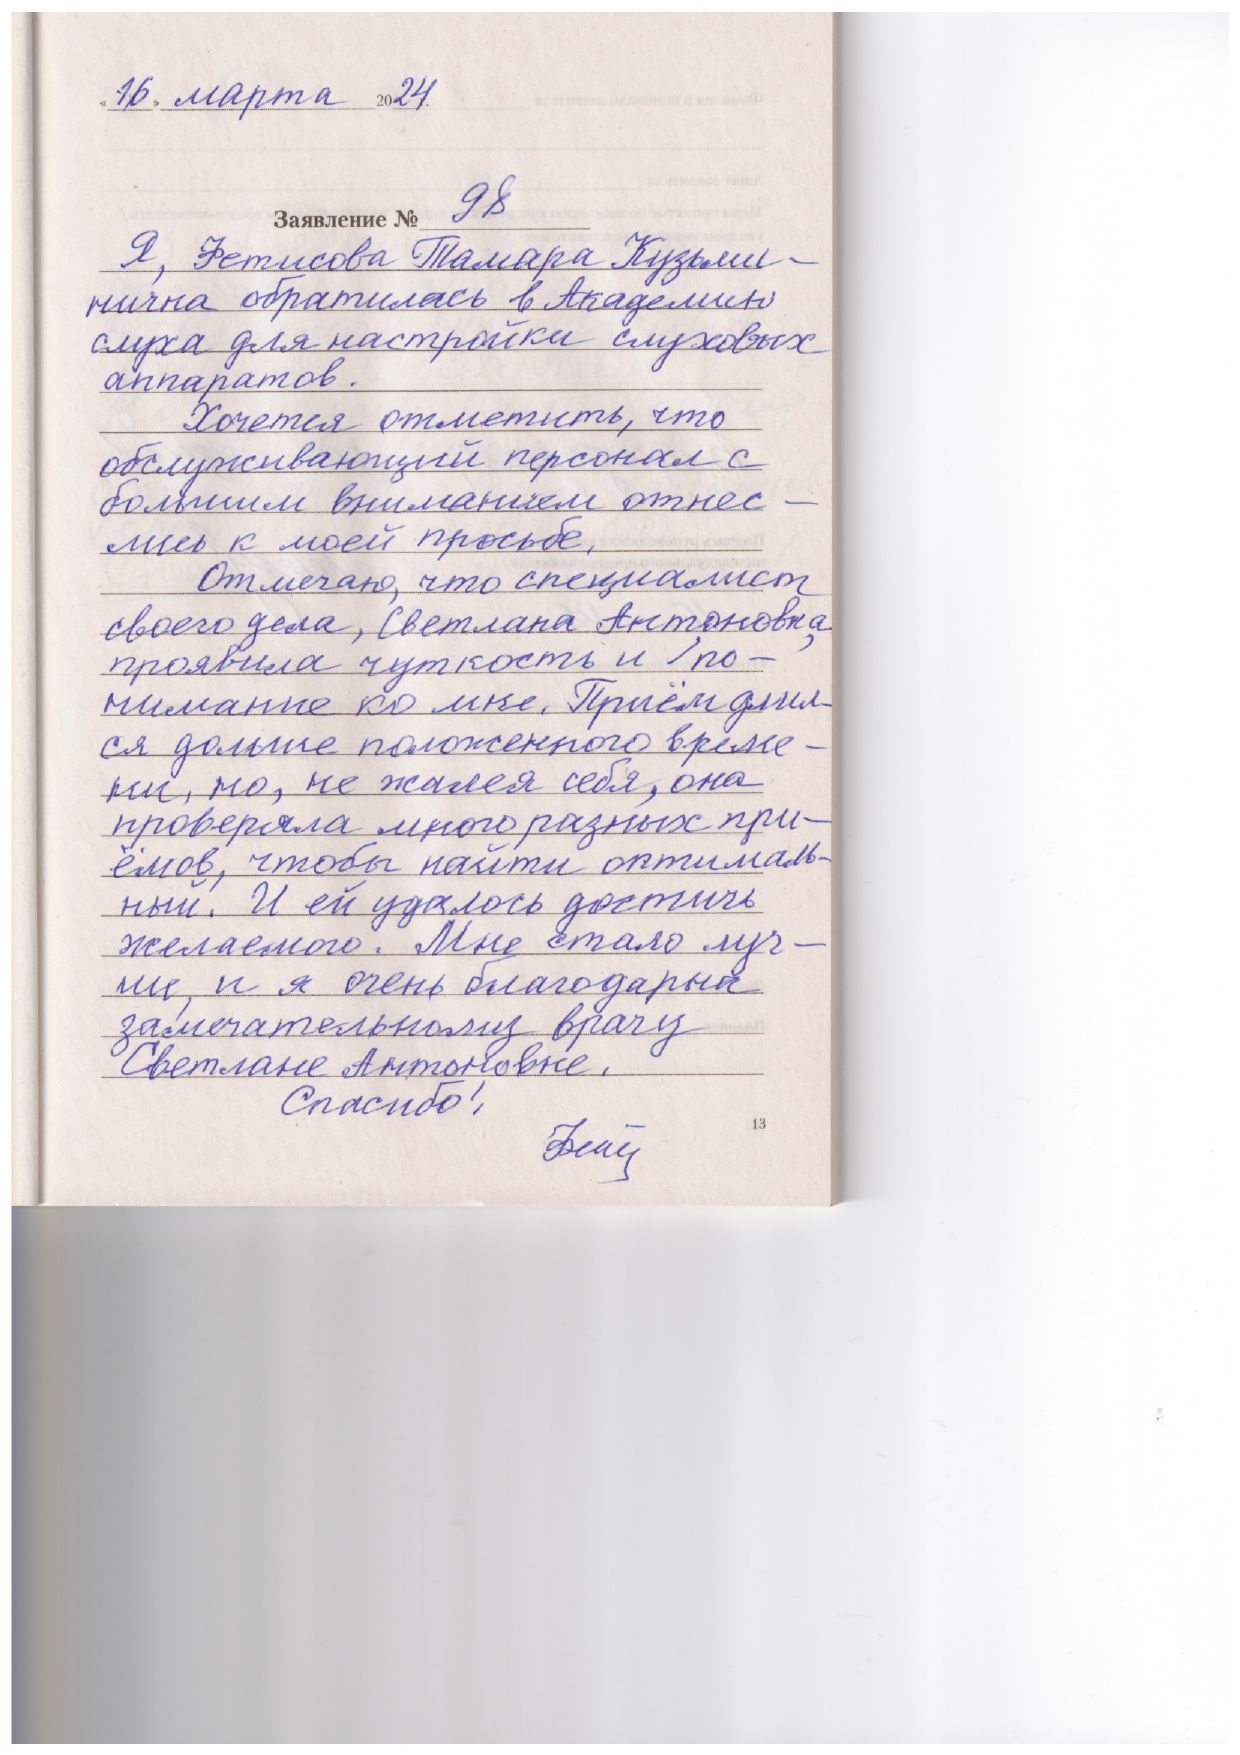 «16» марта 2024 г.
Заявление № 98
Я, Фетисова Тамара Кузьми-
нична обратилась в Академию
слуха для настройки слуховых
аппаратов.
Хочется отметить, что
обслуживающий персонал с
большим вниманием отнес-
лись к моей просьбе.
Отмечаю, что специалист
своего дела, Светлана Антоновна,
проявила чуткость и по-
нимание ко мне. Приём длил-
ся дольше положенного време-
ни, но, не жалея себя, она
проверяла много разных при-
ёмов, чтобы найти оптималь-
ный. И ей удалось достичь
желаемого. Мне стало луч-
ше, и я очень благодарна
замечательному врачу
Светлане Антоновне.
Спасибо!
13